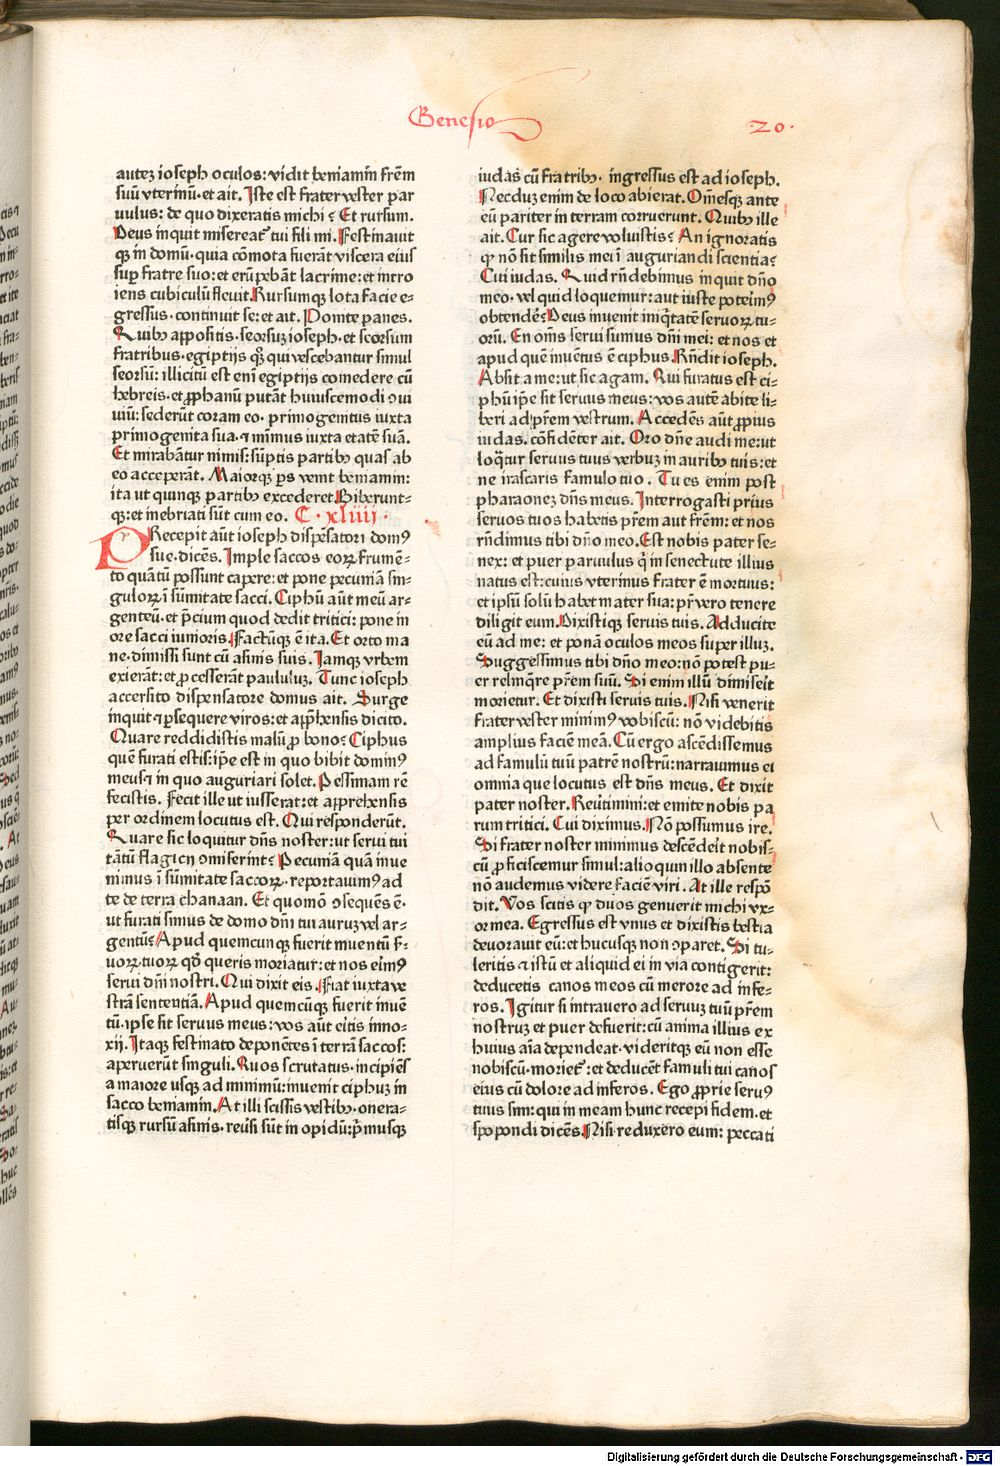 Genesis
·20·
autez ioseph oculos: vidit beniamin frēm
suū vterinū· et ait. Iste est frater vester par
uulus: de quo dixeratis michi? Et rursum.
Deus inquit misereat᷑ tui fili mi. Festinauit
qꝫ in domū· quia cōmota fuerāt viscera eius
suꝑ fratre suo: et erūpebāt lacrime: et intro
iens cubiculū fleuit. Rursumqꝫ lota facie e-
gressus· continuit se: et ait. Ponite panes.
Quibꝰ appositis· seorsuꝫ ioseph· et seorsum
fratribus· egiptijs qꝫ qui vescebantur simul
seorsū: illicitū est enī egiptijs comedere cū
hebreis· et ꝓphanū putāt huiuscemodi ꝯui
uiū: sederūt coram eo· primogenitus iuxta
primogenita sua· ⁊ minus iuxta etatē suā.
Et mirabātur nimis: sūptis partibꝰ quas ab
eo acceperāt. Maiorqꝫ ꝑs venit beniamin:
ita ut quinqꝫ partibꝰ excederet. Biberunt-
qꝫ: et inebriati sūt cum eo. C· xliiii ·
PRecepit aūt ioseph dispēsatori domꝰ
sue· dicēs. Imple saccos eoꝝ frumē-
to quātū possunt capere: et pone pecuniā sin-
guloꝝ ī sūmitate sacci. Ciphū aūt meū ar-
genteū· et p̄cium quod dedit tritici: pone in
ore sacci iunioris. Factūqꝫ ē ita. Et orto ma
ne· dimissi sunt cū asinis suis. Iamqꝫ vrbem
exierāt: et ꝓcesserāt paululuꝫ. Tunc ioseph
accersito dispensatore domus ait. Surge
inquit ⁊ ꝑsequere viros: et app̄hensis dicito.
Quare reddidistis malū ꝓ bono? Ciphus
quē furati estis: ip̄e est in quo bibit dominꝰ
meus ⁊ in quo auguriari solet. Pessimam rē
fecistis. Fecit ille ut iusserat: et apprehensis
per ordinem locutus est. Qui responderūt.
Quare sic loquitur dn̄s noster: ut serui tui
tātū flagicij ꝯmiserint? Pecuniā quā inue
nimus ī sūmitate saccoꝝ· reportauimꝰ ad
te de terra chanaan. Et quomō ꝯsequēs ē·
ut furati simus de domo dn̄i tui auruꝫ vel ar-
gentū? Apud quemcunqꝫ fuerit inuentū s̄-
uoꝝ tuoꝝ qd̄ queris moriatur: et nos erimꝰ
serui dn̄i nostri. Qui dixit eis. Fiat iuxta ve
strā sententiā. Apud quemcūqꝫ fuerit inuē
tū· ipse sit seruus meus: vos aūt eritis inno-
xij. Itaqꝫ festinato deponētes ī terrā saccos:
aperuerūt singuli. Quos scrutatus· incipiēs
a maiore usqꝫ ad minimū: inuenit ciphuꝫ in
sacco beniamin. At illi scissis vestibꝰ· onera-
tisqꝫ rursū asinis· reuersi sūt in opidū: p̄musqꝫ
iudas cū fratribꝰ· ingressus est ad ioseph.
Necduꝫ enim de loco abierat. Om̄esqꝫ ante
eū pariter in terram corruerunt. Quibꝰ ille
ait. Cur sic agere voluistis? An ignoratis
ꝙ nō sit similis mei ī auguriandi scientia?
Cui iudas. Quid rn̄debimus inquit dn̄o
meo· vel quid loquemur: aut iuste poterimꝰ
obtendē? Deus inuenit iniq̄tatē seruoꝝ tu-
orū. En om̄s serui sumus dn̄i mei: et nos et
apud quē inuētus ē ciphus. Rn̄dit ioseph.
Absit a me: ut sic agam. Qui furatus est ci-
phū ip̄e sit seruus meus: vos autē abite li-
beri ad p̄rem vestrum. Accedēs aūt ꝓpius
iudas. cōfidēter ait. Oro dn̄e audi me: ut
loq̄tur seruus tuus verbuꝫ in auribꝰ tuis: et
ne irascaris famulo tuo. Tu es enim post
pharaoneꝫ dn̄s meus. Interrogasti prius
seruos tuos habetis p̄rem aut frēm: et nos
rn̄dimus tibi dn̄o meo. Est nobis pater se-
nex: et puer paruulus q̄ in senectute illius
natus est: cuius vterinus frater ē mortuus:
et ipsū solū habet mater sua: pr̄ vero tenere
diligit eum. Dixistiqꝫ seruis tuis. Adducite
eū ad me: et ponā oculos meos super illuꝫ.
Suggessimus tibi dn̄o meo: nō potest pu-
er relinq̄re p̄rem suū. Si enim illū dimiserit
morietur. Et dixisti seruis tuis. Nisi venerit
frater vester minimꝰ vobiscū: nō videbitis
amplius faciē meā. Cū ergo ascēdissemus
ad famulū tuū patrē nostrū: narrauimus ei
omnia que locutus est dn̄s meus. Et dixit
pater noster. Reuertimini: et emite nobis pa
rum tritici. Cui diximus. Nō possumus ire.
Si frater noster minimus descēderit nobis-
cū ꝓficiscemur simul: alioquin illo absente
nō audemus videre faciē viri. At ille respō
dit. Vos scitis ꝙ duos genuerit michi vx-
or mea. Egressus est vnus et dixistis bestia
deuorauit eū: et hucusqꝫ non ꝯparet. Si tu-
leritis ⁊ istū et aliquid ei in via contigerit:
deducetis canos meos cū merore ad infe-
ros. Igitur si intrauero ad seruuꝫ tuū p̄rem
nostruꝫ et puer defuerit: cū anima illius ex
huius aīa dependeat· videritqꝫ eū non esse
nobiscū· moriet᷑: et deducēt famuli tui canos
eius cū dolore ad inferos. Ego ꝓprie seruꝰ
tuus sim: qui in meam hunc recepi fidem· et
spopondi dicēs. Nisi reduxero eum: peccati
Digitalisierung gefördert durch die Deutsche Forschungsgemeinschaft - DFG